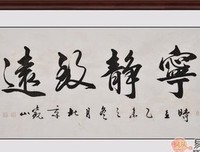 寧靜致遠
時在乙未之冬月北京